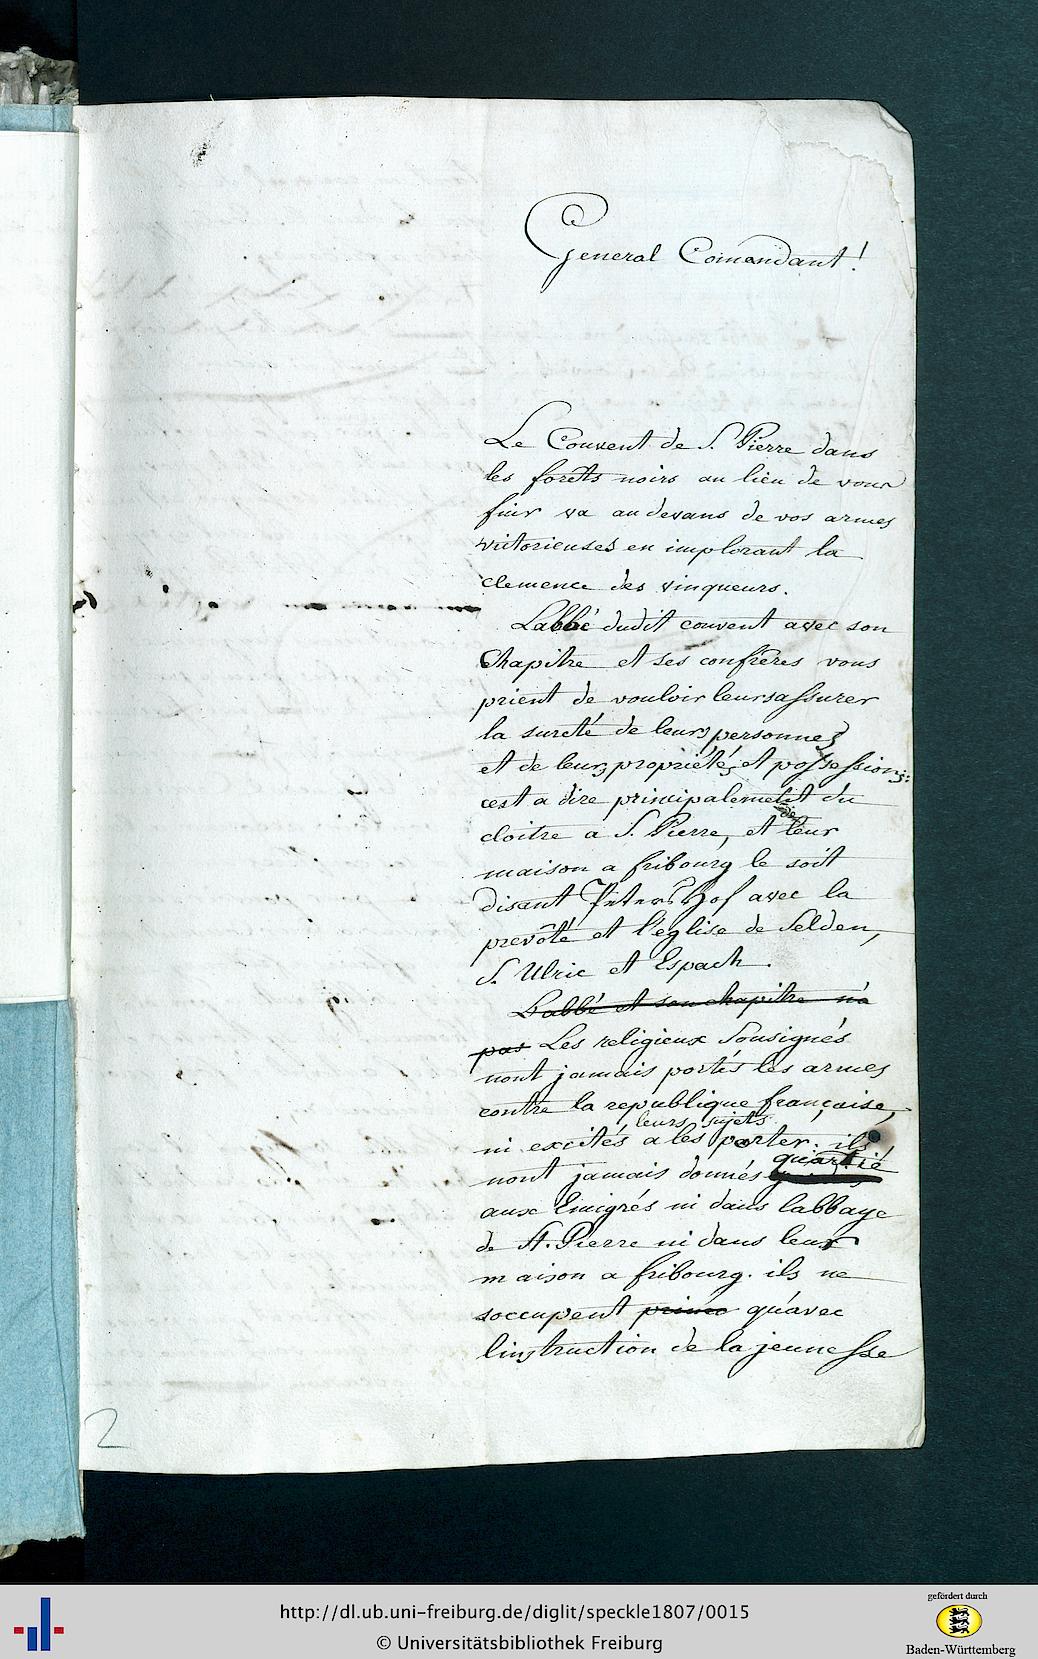 General Comandant!
Le Couvent de S. Pierre dans
les forêts noirs au lieu de vous
fuir va au devans de vos armes
victorieuses en implorant la
clemence des vinqueurs.
Labbé dudit couvent avec son
Chapitre et ses confrères vous
prient de vouloir leurs assurer
la sureté de leurs personnes
et de leurs propriétés et possessions:
cest a dire principalement du
cloitre a S. Pierre, et de leur
maison a fribourg le soit
disant Peters Hof avec la
prevôté et l'église de Selden,
S. Ulric et Espach.
Labbé et son chapitre n'a
pas Les religieux Sousignés
nont jamais portés les armes
contre la republique française,
leurs sujets
ni excités a les porter. ils
quartié
nont jamais donnés
aux Emigrés ni dans labbaye
de St. Pierre ni dans leur
maison a fribourg. ils ne
soccupent qu'avec
linstruction de la jeunesse
2
http://dl.ub.uni-freiburg.de/diglit/speckle1807/0015
© Universitätsbibliothek Freiburg
gefördert durch
Baden-Württemberg